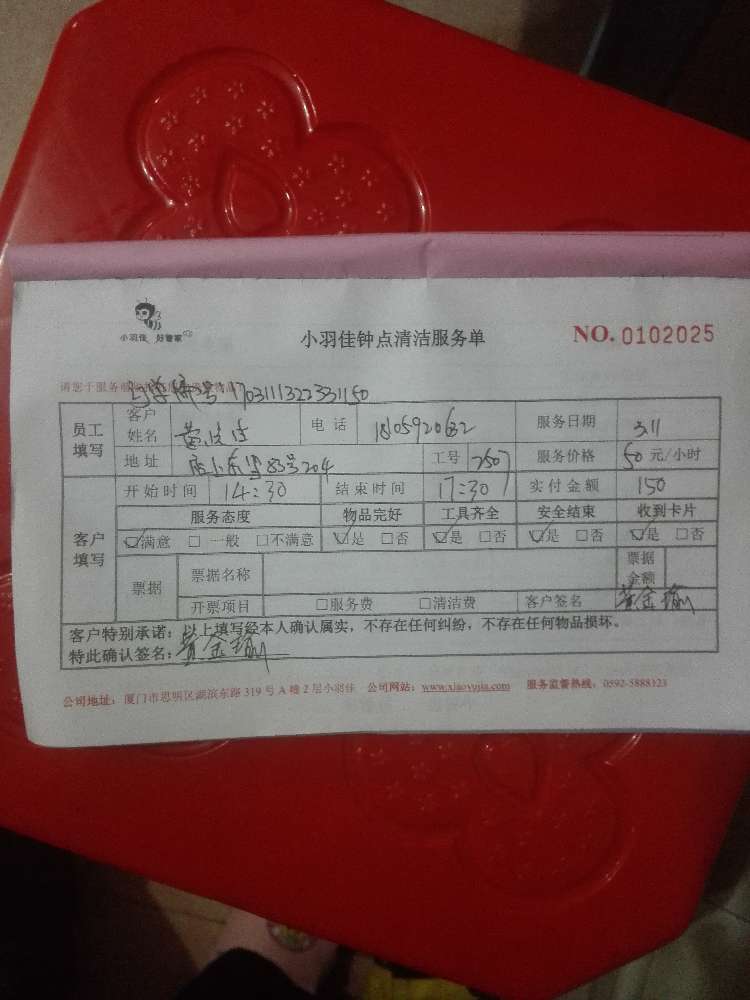 小羽佳 好管家
小羽佳钟点清洁服务单
NO. 0102025
请您于服务
编号 1703111322331150
员工填写
客户姓名 黄
电话
服务日期 3.11
地址 83号204
工号 2507
服务价格 50 元/小时
客户填写
开始时间 14:30
结束时间 17:30
实付金额 150
服务态度 物品完好 工具齐全 安全结束 收到卡片
☑满意 □ 一般 □不满意 ☑是 □否 ☑是 □否 ☑是 □否 ☑是 □否
票据
票据名称
票据金额
开票项目 □服务费 □清洁费 客户签名 黄金瑜
客户特别承诺：以上填写经本人确认属实，不存在任何纠纷，不存在任何物品损坏。
特此确认签名：黄金瑜
公司地址：厦门市思明区湖滨东路 319 号 A 幢 2 层小羽佳 公司网站：www.xiaoyujia.com 服务监督热线：0592-5888123